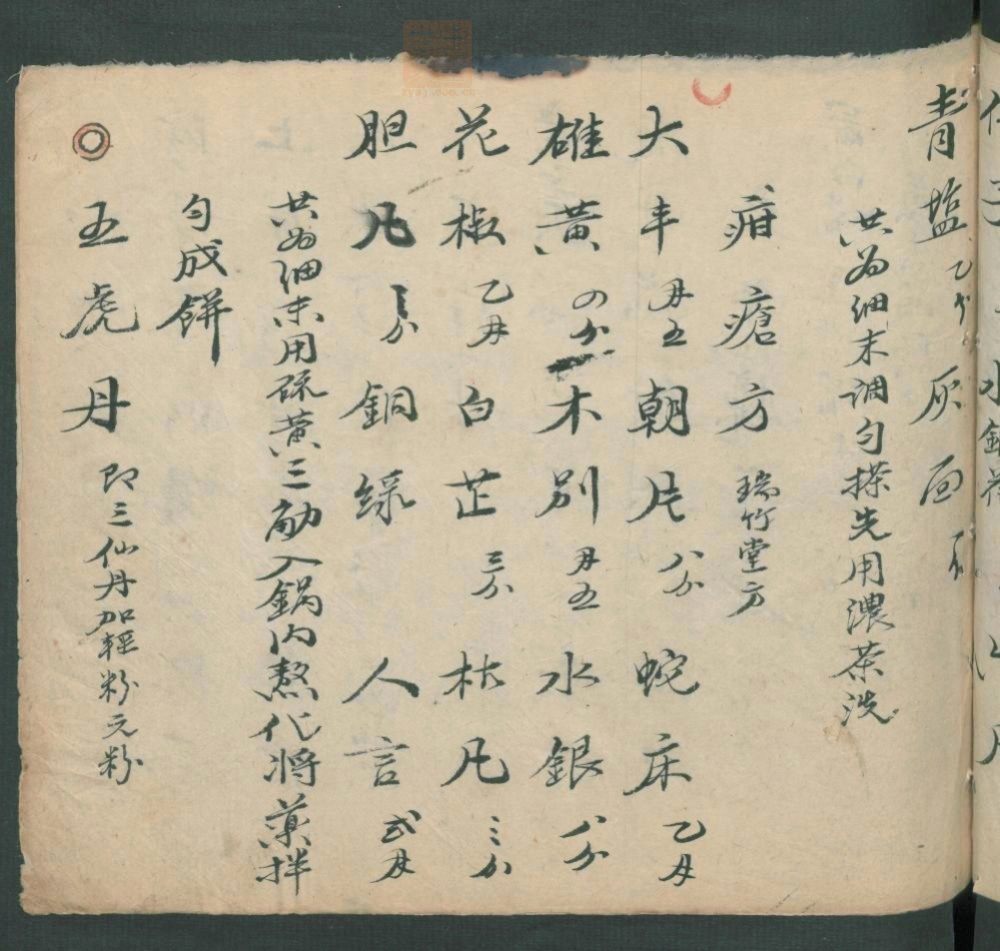 青塩乙分灰面
共為細末調匀搽先用濃茶洗
疳瘡方 瑞竹堂方
大丰 毋五 朝片 八分 蛇床 乙毋
雄黄 の分 木别 毋五 水銀 八分
花椒 乙毋 白芷 三分 枯凡 三分
胆凡 三分 銅緑 人言 弍毋
共為細末用硫黄三觔入鍋内熬化將藥拌
匀成餅
◎五虎丹 即三仙丹加輕粉元粉